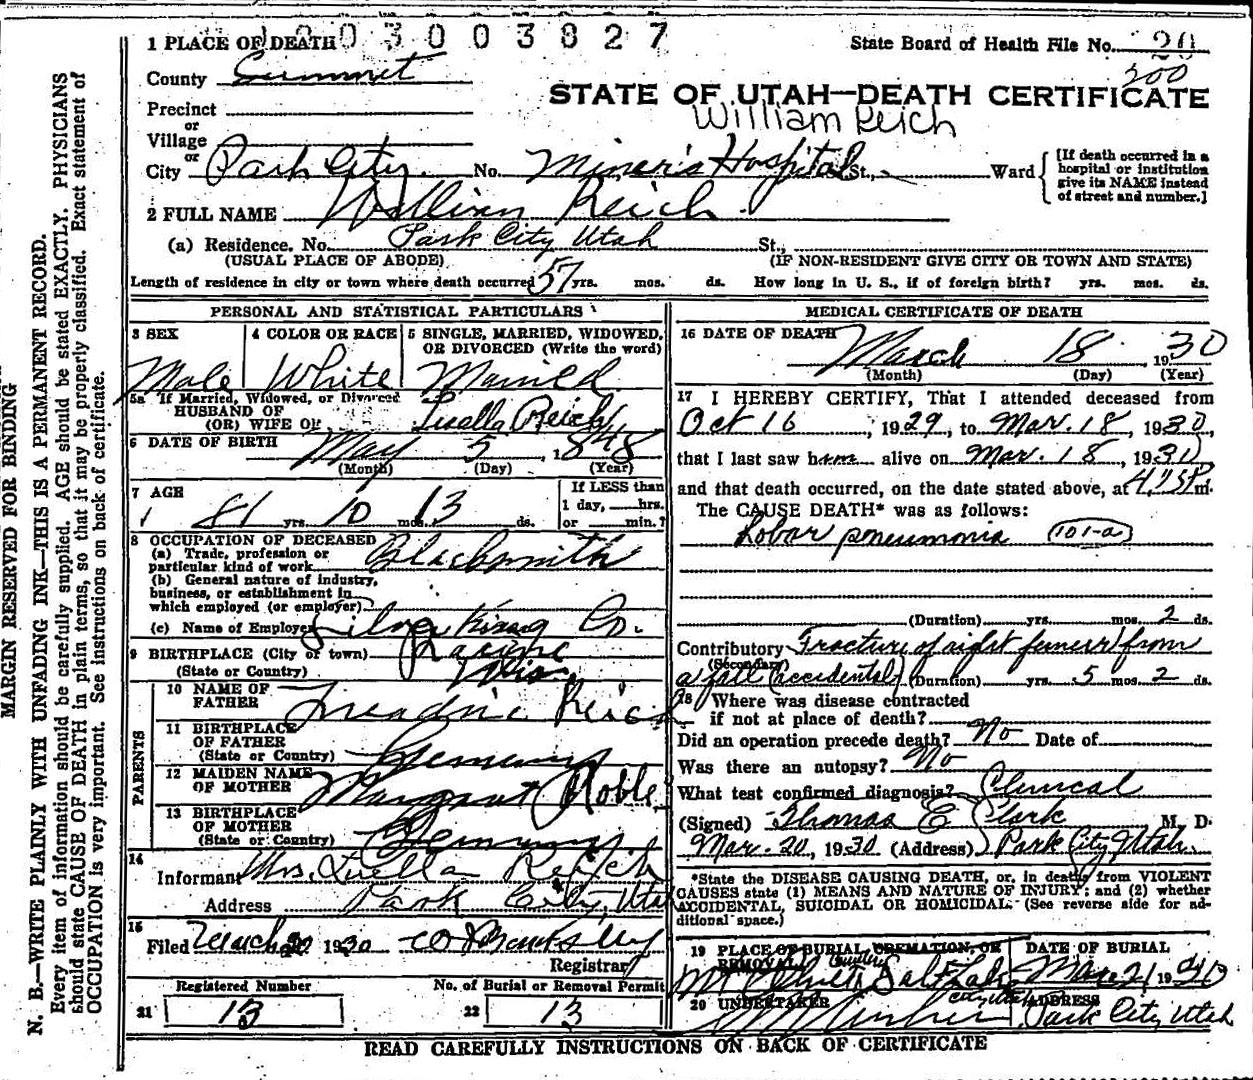 3003827
1 PLACE OF DEATH
State Board of Health File No. 20
200
County Summit
STATE OF UTAH—DEATH CERTIFICATE
William Reich
Precinct
or
Village
or
City Park City No. Miner's Hospital St., Ward
[If death occurred in a hospital or institution give its NAME instead of street and number.]
2 FULL NAME William Reich
(a) Residence. No. Park City Utah St.,
(USUAL PLACE OF ABODE) (IF NON-RESIDENT GIVE CITY OR TOWN AND STATE)
Length of residence in city or town where death occurred 57 yrs. mos. ds. How long in U. S., if of foreign birth? yrs. mos. ds.
PERSONAL AND STATISTICAL PARTICULARS
3 SEX
Male
4 COLOR OR RACE
White
5 SINGLE, MARRIED, WIDOWED, OR DIVORCED (Write the word)
Married
5a If Married, Widowed, or Divorced
HUSBAND OF
(OR) WIFE OF Luella Reich
6 DATE OF BIRTH May 5, 1848
(Month) (Day) (Year)
7 AGE
81 yrs. 10 mos. 13 ds.
If LESS than
1 day, hrs.
or min.?
8 OCCUPATION OF DECEASED
(a) Trade, profession or
particular kind of work Blacksmith
(b) General nature of industry,
business, or establishment in
which employed (or employer)
(c) Name of Employer Silver King Co.
9 BIRTHPLACE (City or town) Racine
(State or Country) Wis
PARENTS
10 NAME OF FATHER Reich
11 BIRTHPLACE OF FATHER
(State or Country) Germany
12 MAIDEN NAME OF MOTHER Margaret Noble
13 BIRTHPLACE OF MOTHER
(State or Country) Germany
14
Informant Mrs. Luella Reich
Address Park City, Utah
15
Filed March 20 1930
Registrar
Registered Number
21 13
No. of Burial or Removal Permit
22 13
MEDICAL CERTIFICATE OF DEATH
16 DATE OF DEATH
March 18, 1930
(Month) (Day) (Year)
17 I HEREBY CERTIFY, That I attended deceased from
Oct 16, 1929, to Mar. 18, 1930,
that I last saw him alive on Mar. 18, 1930
and that death occurred, on the date stated above, at m.
The CAUSE DEATH* was as follows:
Lobar pneumonia (101-a)
(Duration) yrs. mos. 2 ds.
Contributory Fracture of right femur from
(Secondary)
a fall (accidental) (Duration) yrs. 5 mos. 2 ds.
18 Where was disease contracted
if not at place of death?
Did an operation precede death? No Date of
Was there an autopsy? No
What test confirmed diagnosis? Clinical
(Signed) Thomas E Clark M. D.
Mar. 20, 1930 (Address) Park City, Utah.
*State the DISEASE CAUSING DEATH, or, in deaths from VIOLENT
CAUSES state (1) MEANS AND NATURE OF INJURY; and (2) whether
ACCIDENTAL, SUICIDAL OR HOMICIDAL. (See reverse side for ad-
ditional space.)
19 PLACE OF BURIAL, CREMATION, OR REMOVAL
Mt Olivet Cemetery Salt Lake City Utah
DATE OF BURIAL
Mar 21 1930
20 UNDERTAKER
ADDRESS
Park City Utah
READ CAREFULLY INSTRUCTIONS ON BACK OF CERTIFICATE
MARGIN RESERVED FOR BINDING
N. B.—WRITE PLAINLY WITH UNFADING INK—THIS IS A PERMANENT RECORD.
Every item of information should be carefully supplied. AGE should be stated EXACTLY. PHYSICIANS
should state CAUSE OF DEATH in plain terms, so that it may be properly classified. Exact statement of
OCCUPATION is very important. See instructions on back of certificate.